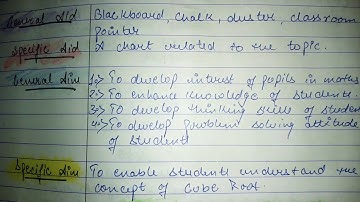 General Aid Blackboard, chalk, duster, classroom
pointer
Specific Aid A chart related to the topic.
General Aim 1.) To develop interest of pupils in maths
2.) To enhance knowledge of students.
3.) To develop thinking skills of student
4.) To develop problem solving attitude
of students
Specific Aim To enable students understand the
concept of Cube Root.